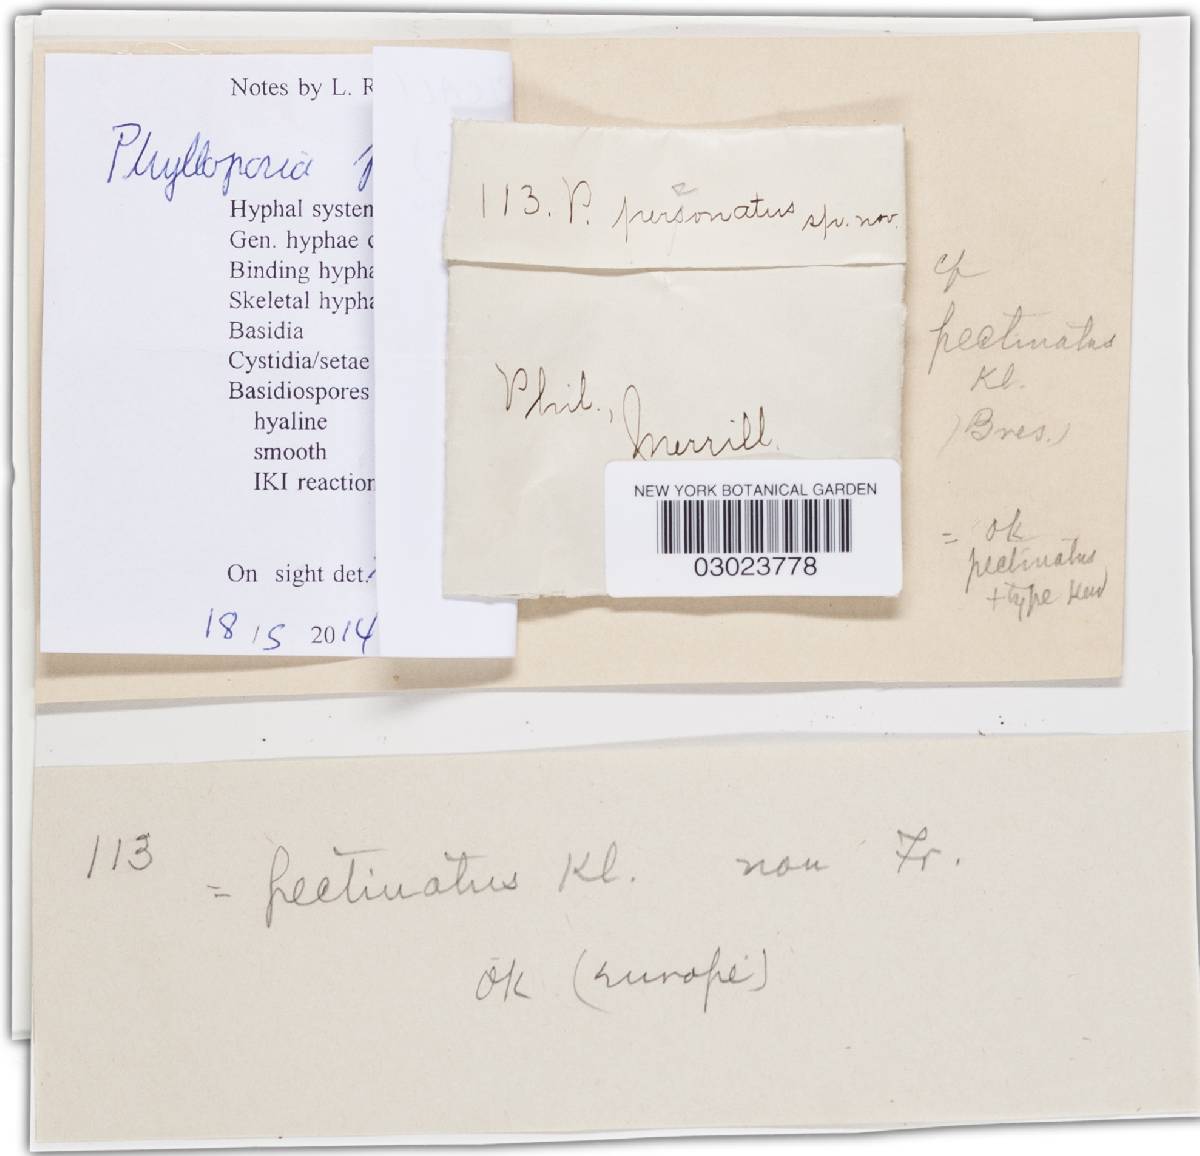 Notes by L. R
Phylloporia p
Hyphal system
Gen. hyphae c
Binding hypha
Skeletal hypha
Basidia
Cystidia/setae
Basidiospores
hyaline
smooth
IKI reaction
On sight det.
18 / 5 2014
113. P. personatus sp. nov.
Phil., Merrill.
NEW YORK BOTANICAL GARDEN
03023778
cf
pectinatus
Kl.
(Bres.)
= ok
pectinatus
+ type
113
= pectinatus Kl. non Fr.
ok (Europe)